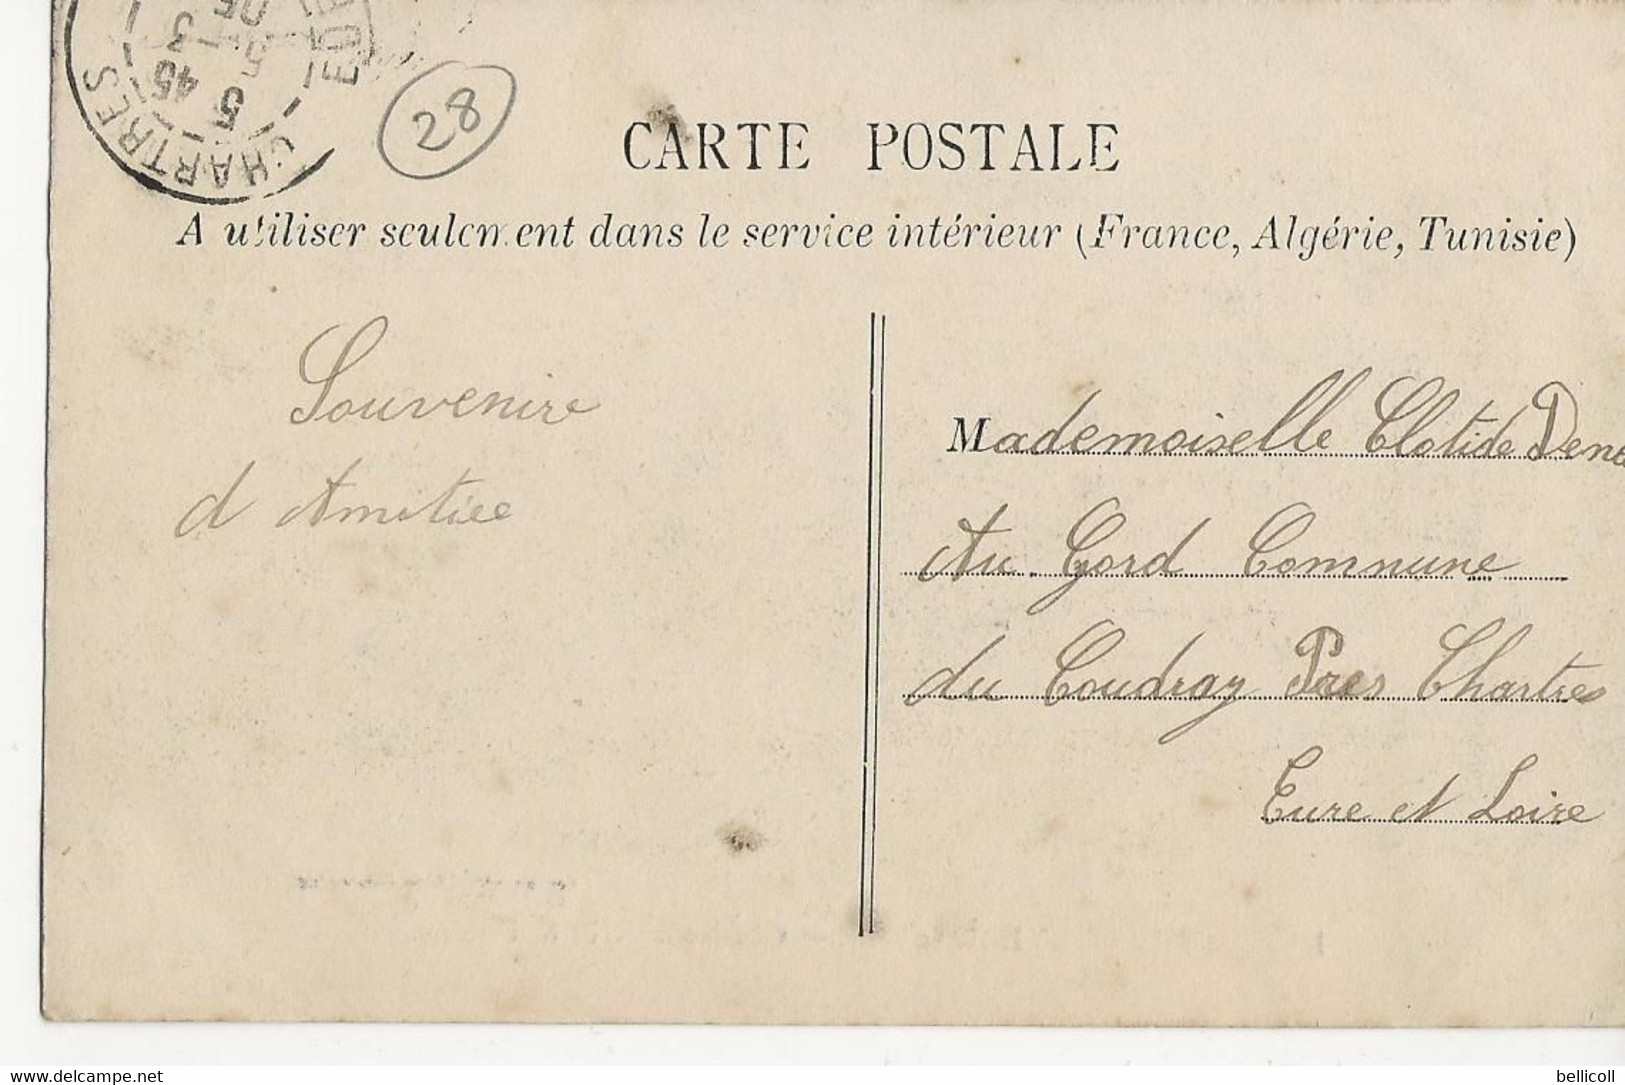 CHARTRES
5 45
28
CARTE POSTALE
A utiliser seulement dans le service intérieur (France, Algérie, Tunisie)
Souvenire
d Amitiee
Mademoiselle Clotide
Au Gord Commune
du Coudray Pres Chartres
Eure et Loire
www.delcampe.net
bellicoll